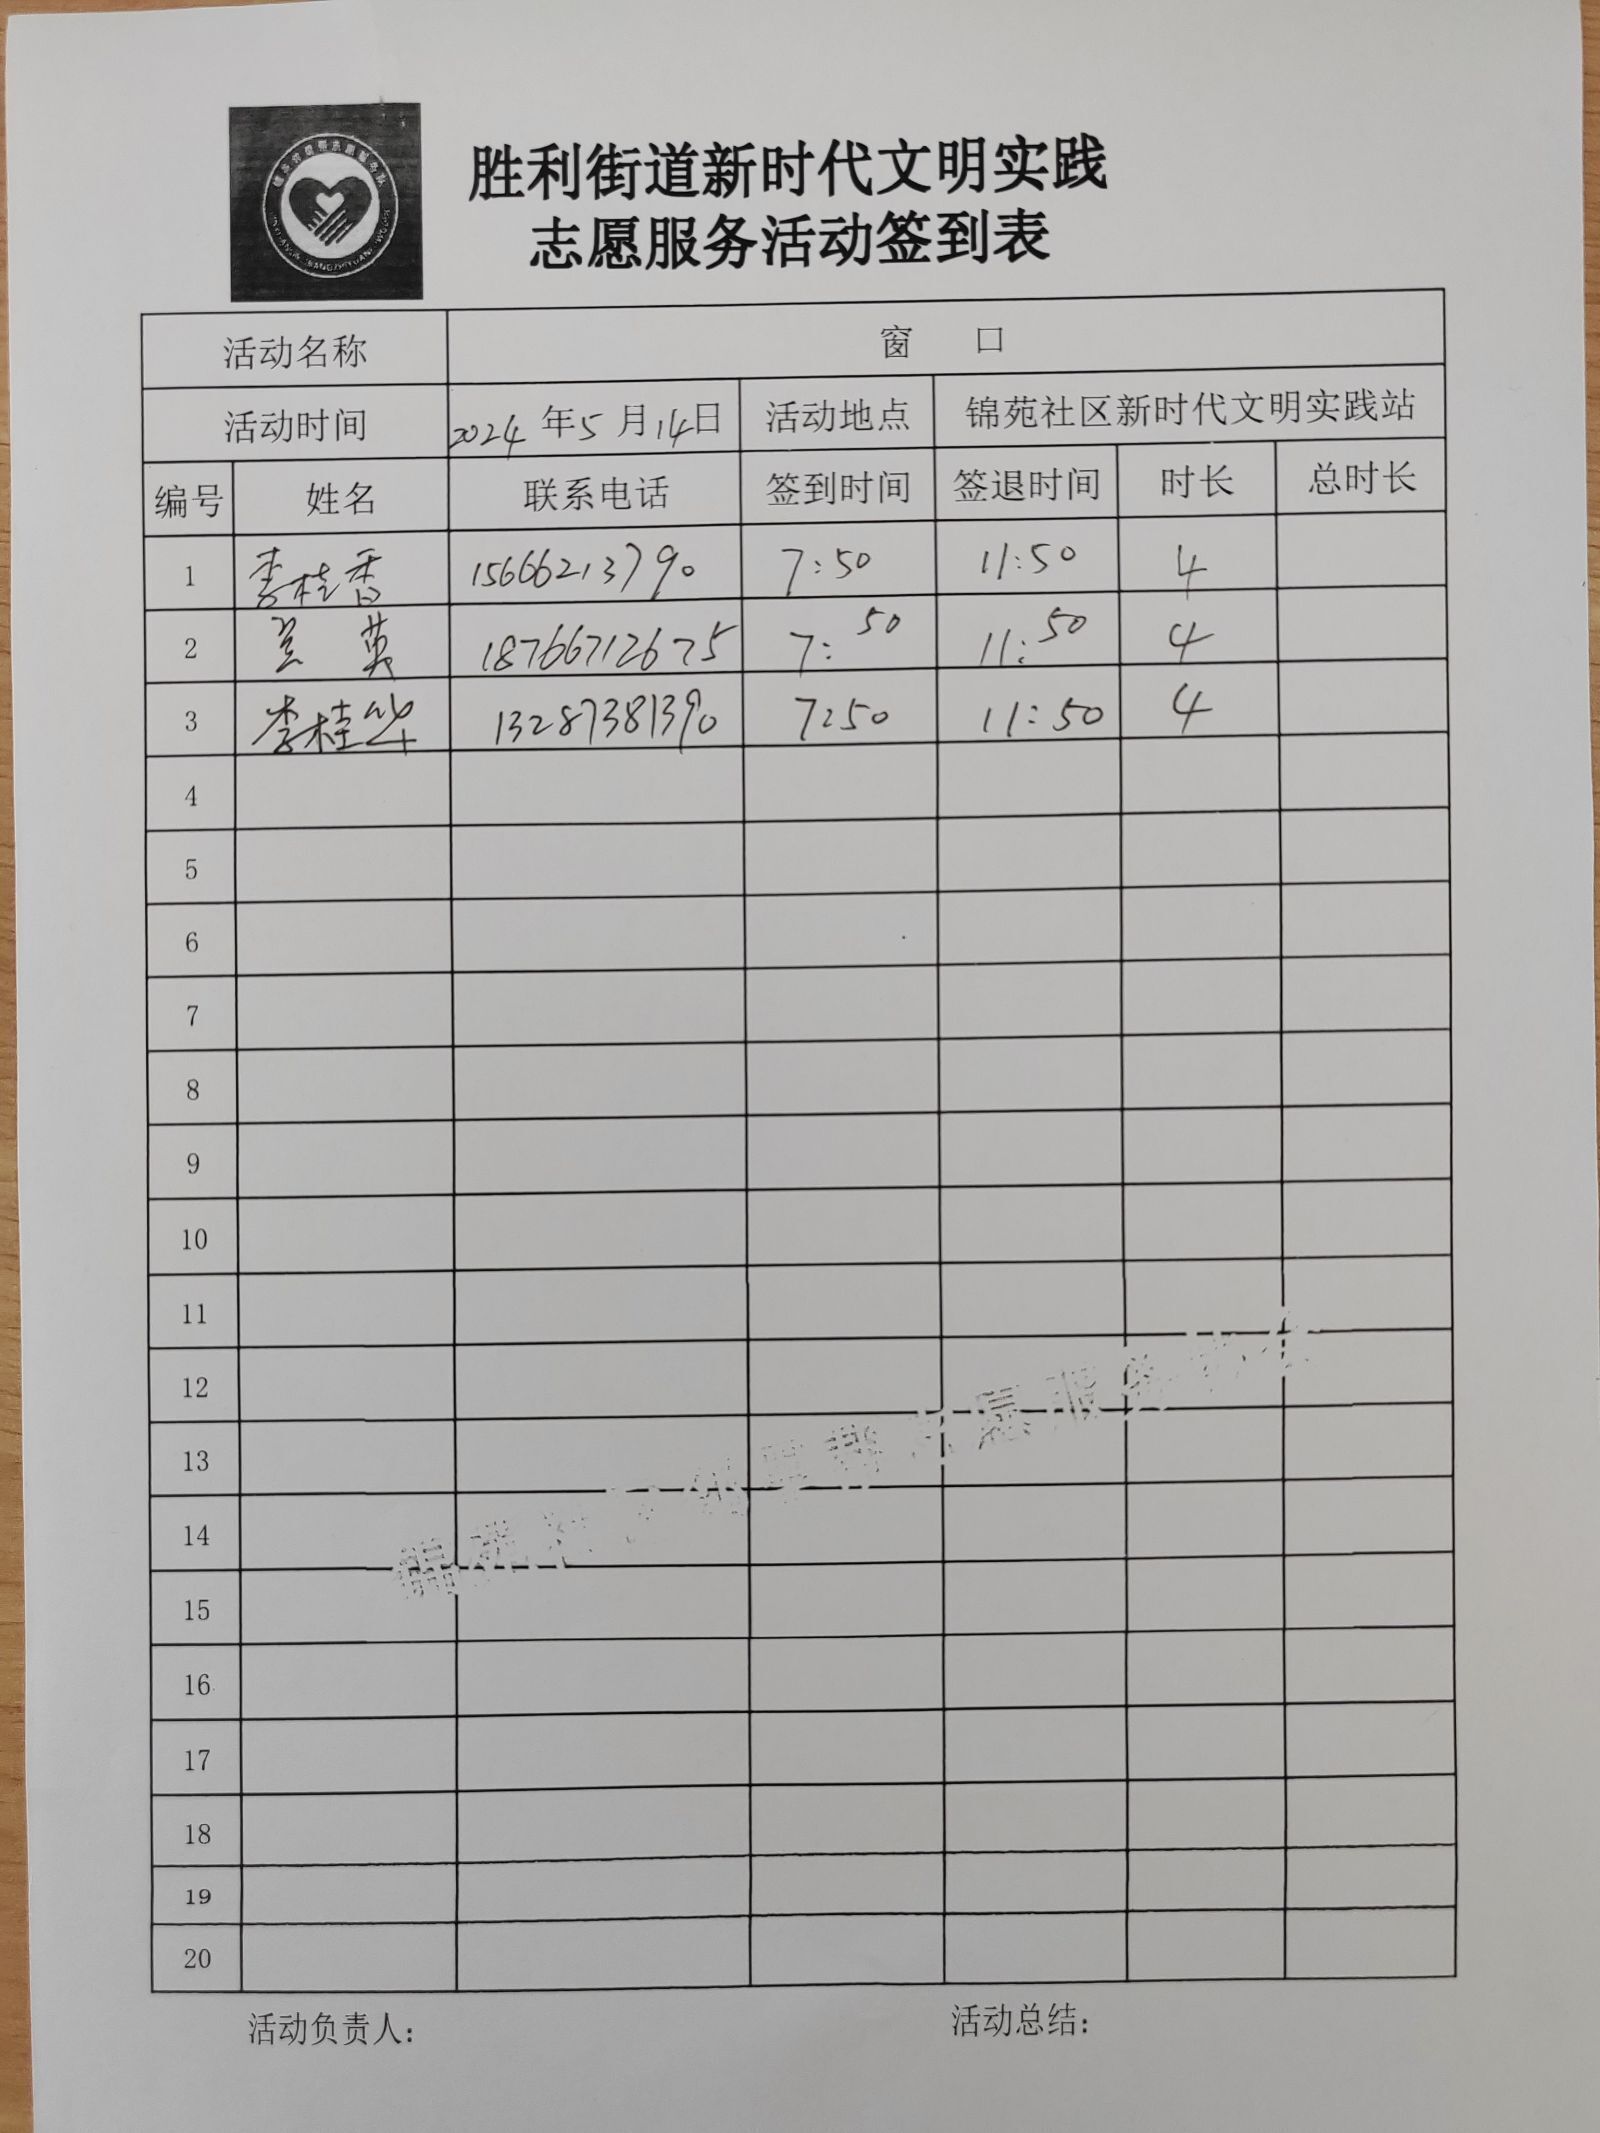 胜利街道新时代文明实践
志愿服务活动签到表
活动名称 窗 口
活动时间 2024年5月14日 活动地点 锦苑社区新时代文明实践站
编号 姓名 联系电话 签到时间 签退时间 时长 总时长
1 李桂香 15666213790 7:50 11:50 4
2 兰英 18766712675 7:50 11:50 4
3 李桂华 13287381390 7:50 11:50 4
4
5
6
7
8
9
10
11
12
13
14
15
16
17
18
19
20
活动负责人: 活动总结: